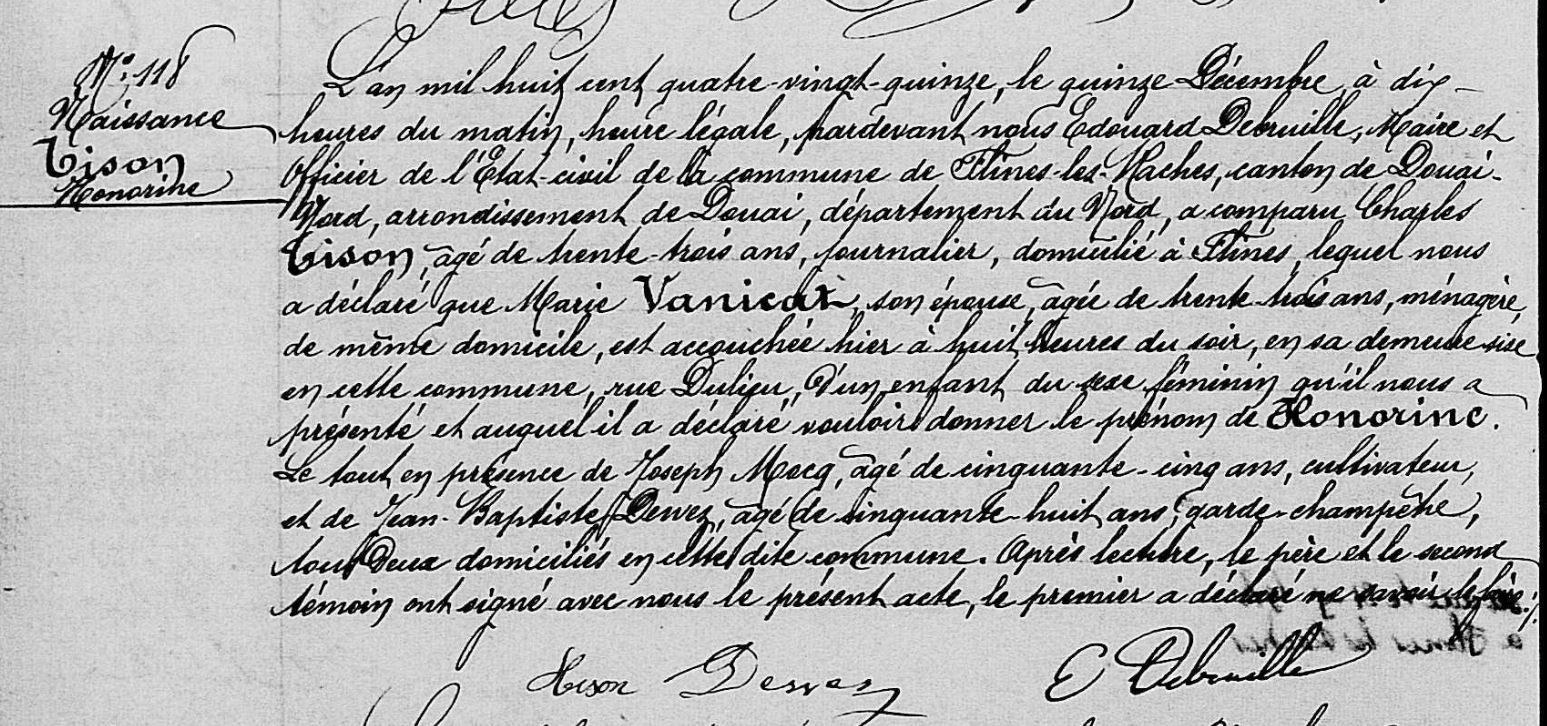 N° 118
Naissance
Tison
Honorine
L'an mil huit cent quatre-vingt-quinze, le quinze Décembre, à dix
heures du matin, heure légale, pardevant nous Edouard Debruille, Maire et
Officier de l'Etat-civil de la commune de Flines-les-Raches, canton de Douai-
Nord, arrondissement de Douai, département du Nord, a comparu Charles
Tison, âgé de trente-trois ans, journalier, domicilié à Flines, lequel nous
a déclaré que Marie Vanicat, son épouse, âgée de trente-trois ans, ménagère,
de même domicile, est accouchée hier à huit heures du soir, en sa demeure sise
en cette commune, rue Dulieu, d'un enfant du sexe féminin qu'il nous a
présenté et auquel il a déclaré vouloir donner le prénom de Honorine.
Le tout en présence de Joseph Mocq, âgé de cinquante-cinq ans, cultivateur,
et de Jean-Baptiste Dewez, âgé de cinquante-huit ans, garde-champêtre,
tous deux domiciliés en cette dite commune. Après lecture, le père et le second
témoin ont signé avec nous le présent acte, le premier a déclaré ne savoir le faire./.
Tison Dewez E Debruille